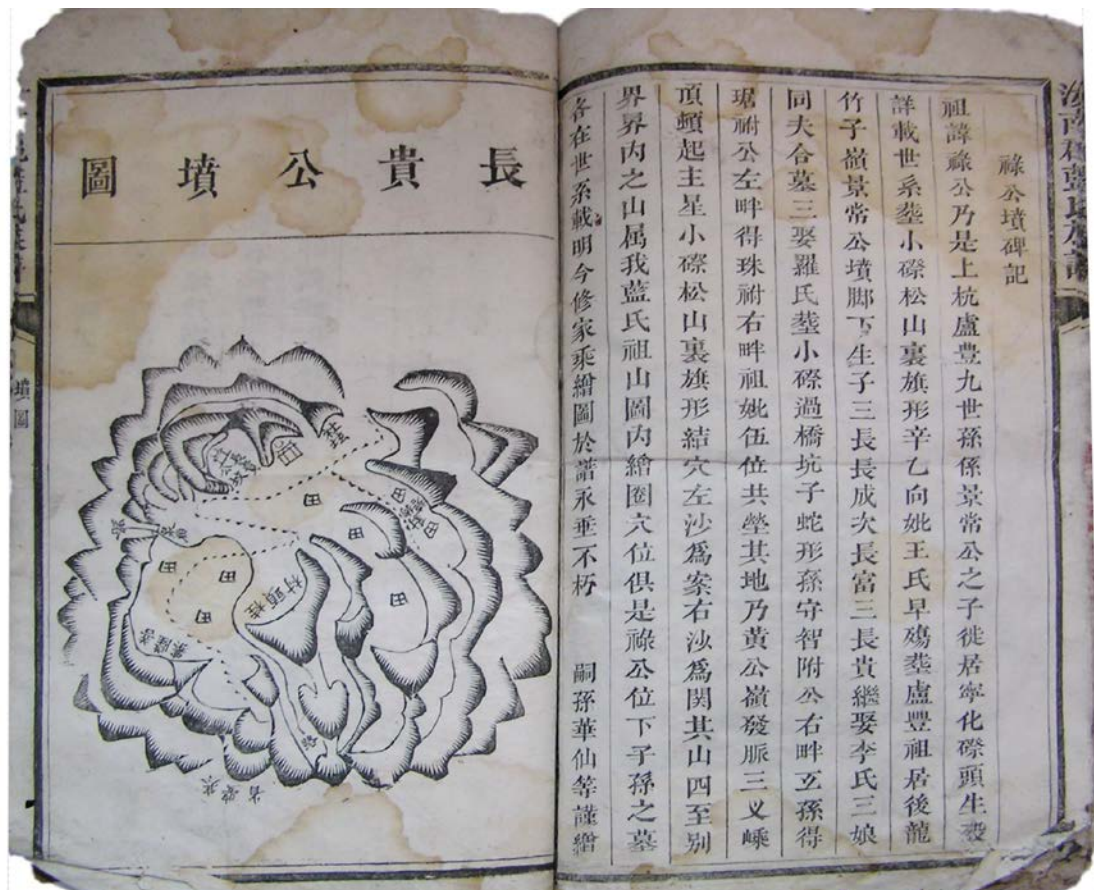 祿公墳碑記
祖諱祿公乃是上杭盧豐九世孫係景常公之子徙居寧化磜頭生歿
詳載世系塟小磜松山裏旗形辛乙向妣王氏早殤塟盧豐祖居後龍
竹子嶺景常公墳脚下生子三長長成次長富三長貴繼娶李氏三娘
同夫合墓三娶羅氏塟小磜過橋坑子蛇形孫守智附公右畔玄孫得
琚祔公左畔得珠祔右畔祖妣伍位共塋其地乃黃公嶺發脈三义嵊
頂頓起主星小磜松山裏旗形結穴左沙爲案右沙爲関其山四至別
界界内之山属我藍氏祖山圖内繪圈穴位俱是祿公位下子孫之墓
各在世系載明今修家乘繪圖於譜永垂不朽 嗣孫華仙等謹繪
汝南郡藍氏族譜
長貴公墳圖
田
田
田
田
田
田
田
田
墳圖